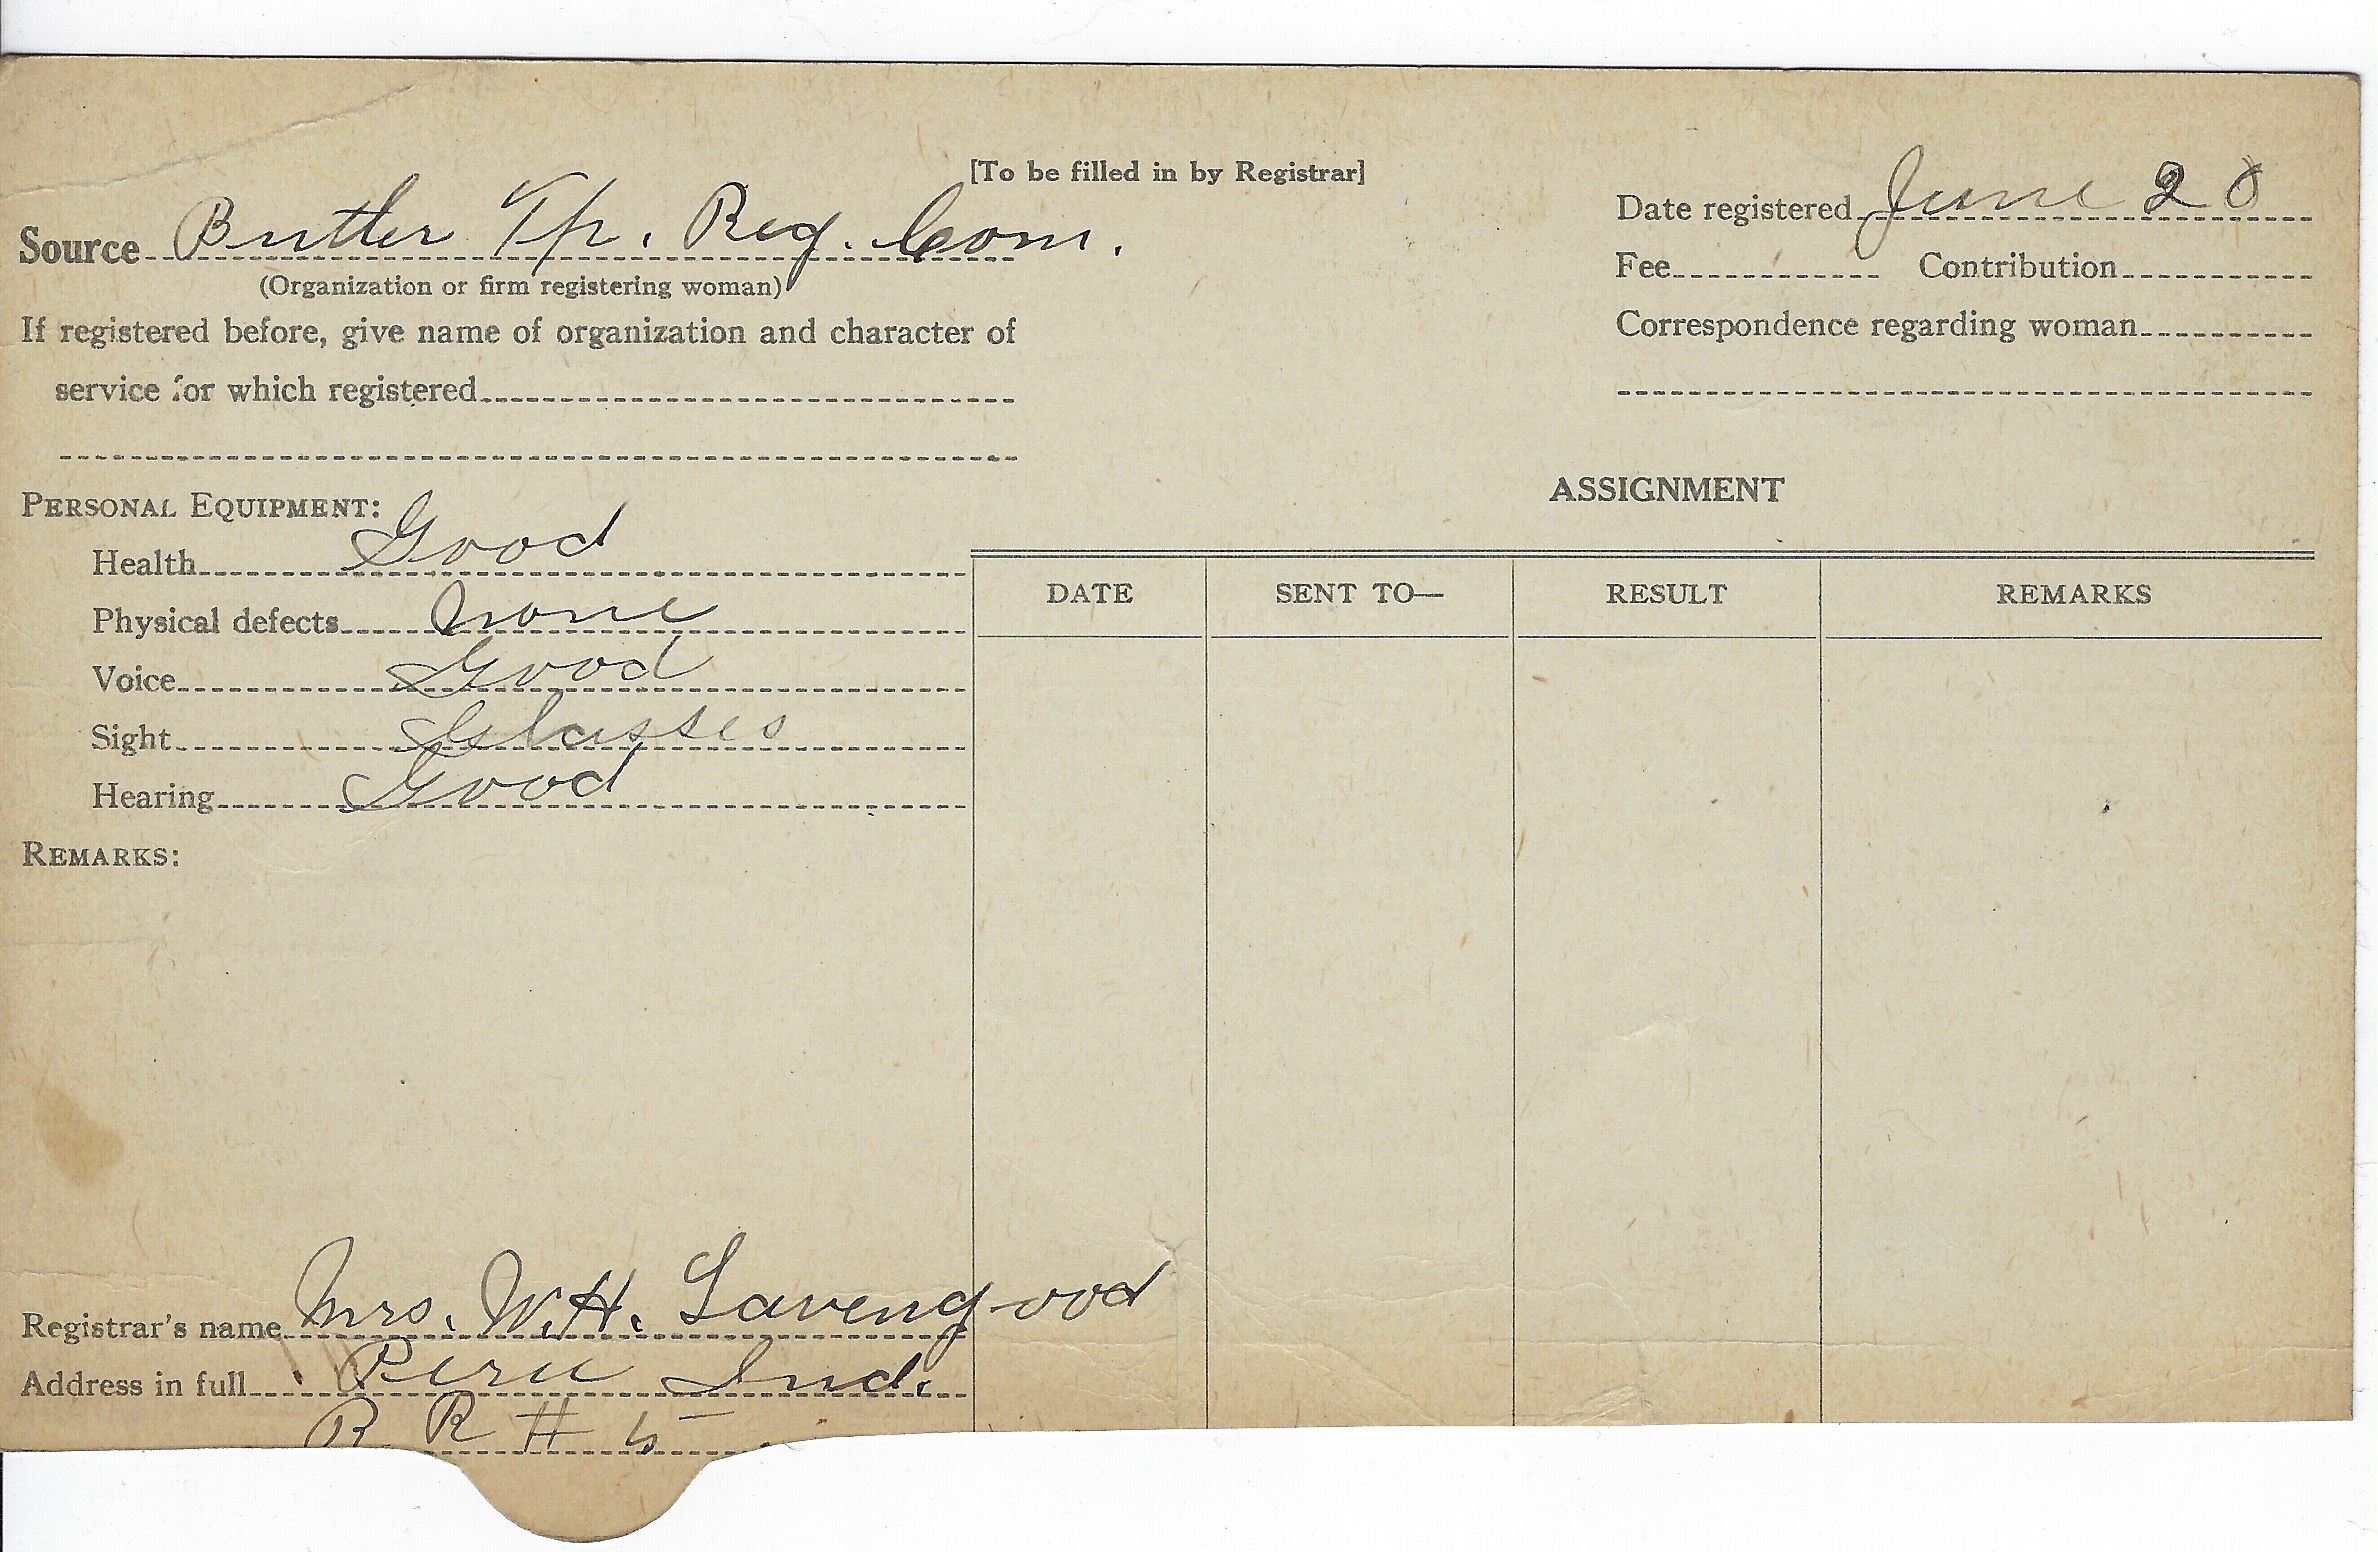 [To be filled in by Registrar]
Source Butler Tp. Reg. Com.
(Organization or firm registering woman)
If registered before, give name of organization and character of
service for which registered
Date registered June 28
Fee Contribution
Correspondence regarding woman
PERSONAL EQUIPMENT:
Health Good
Physical defects None
Voice Good
Sight Glasses
Hearing Good
REMARKS:
ASSIGNMENT
DATE SENT TO— RESULT REMARKS
Registrar's name Mrs. W. H. Lavengood
Address in full Peru Ind.
R R # 5